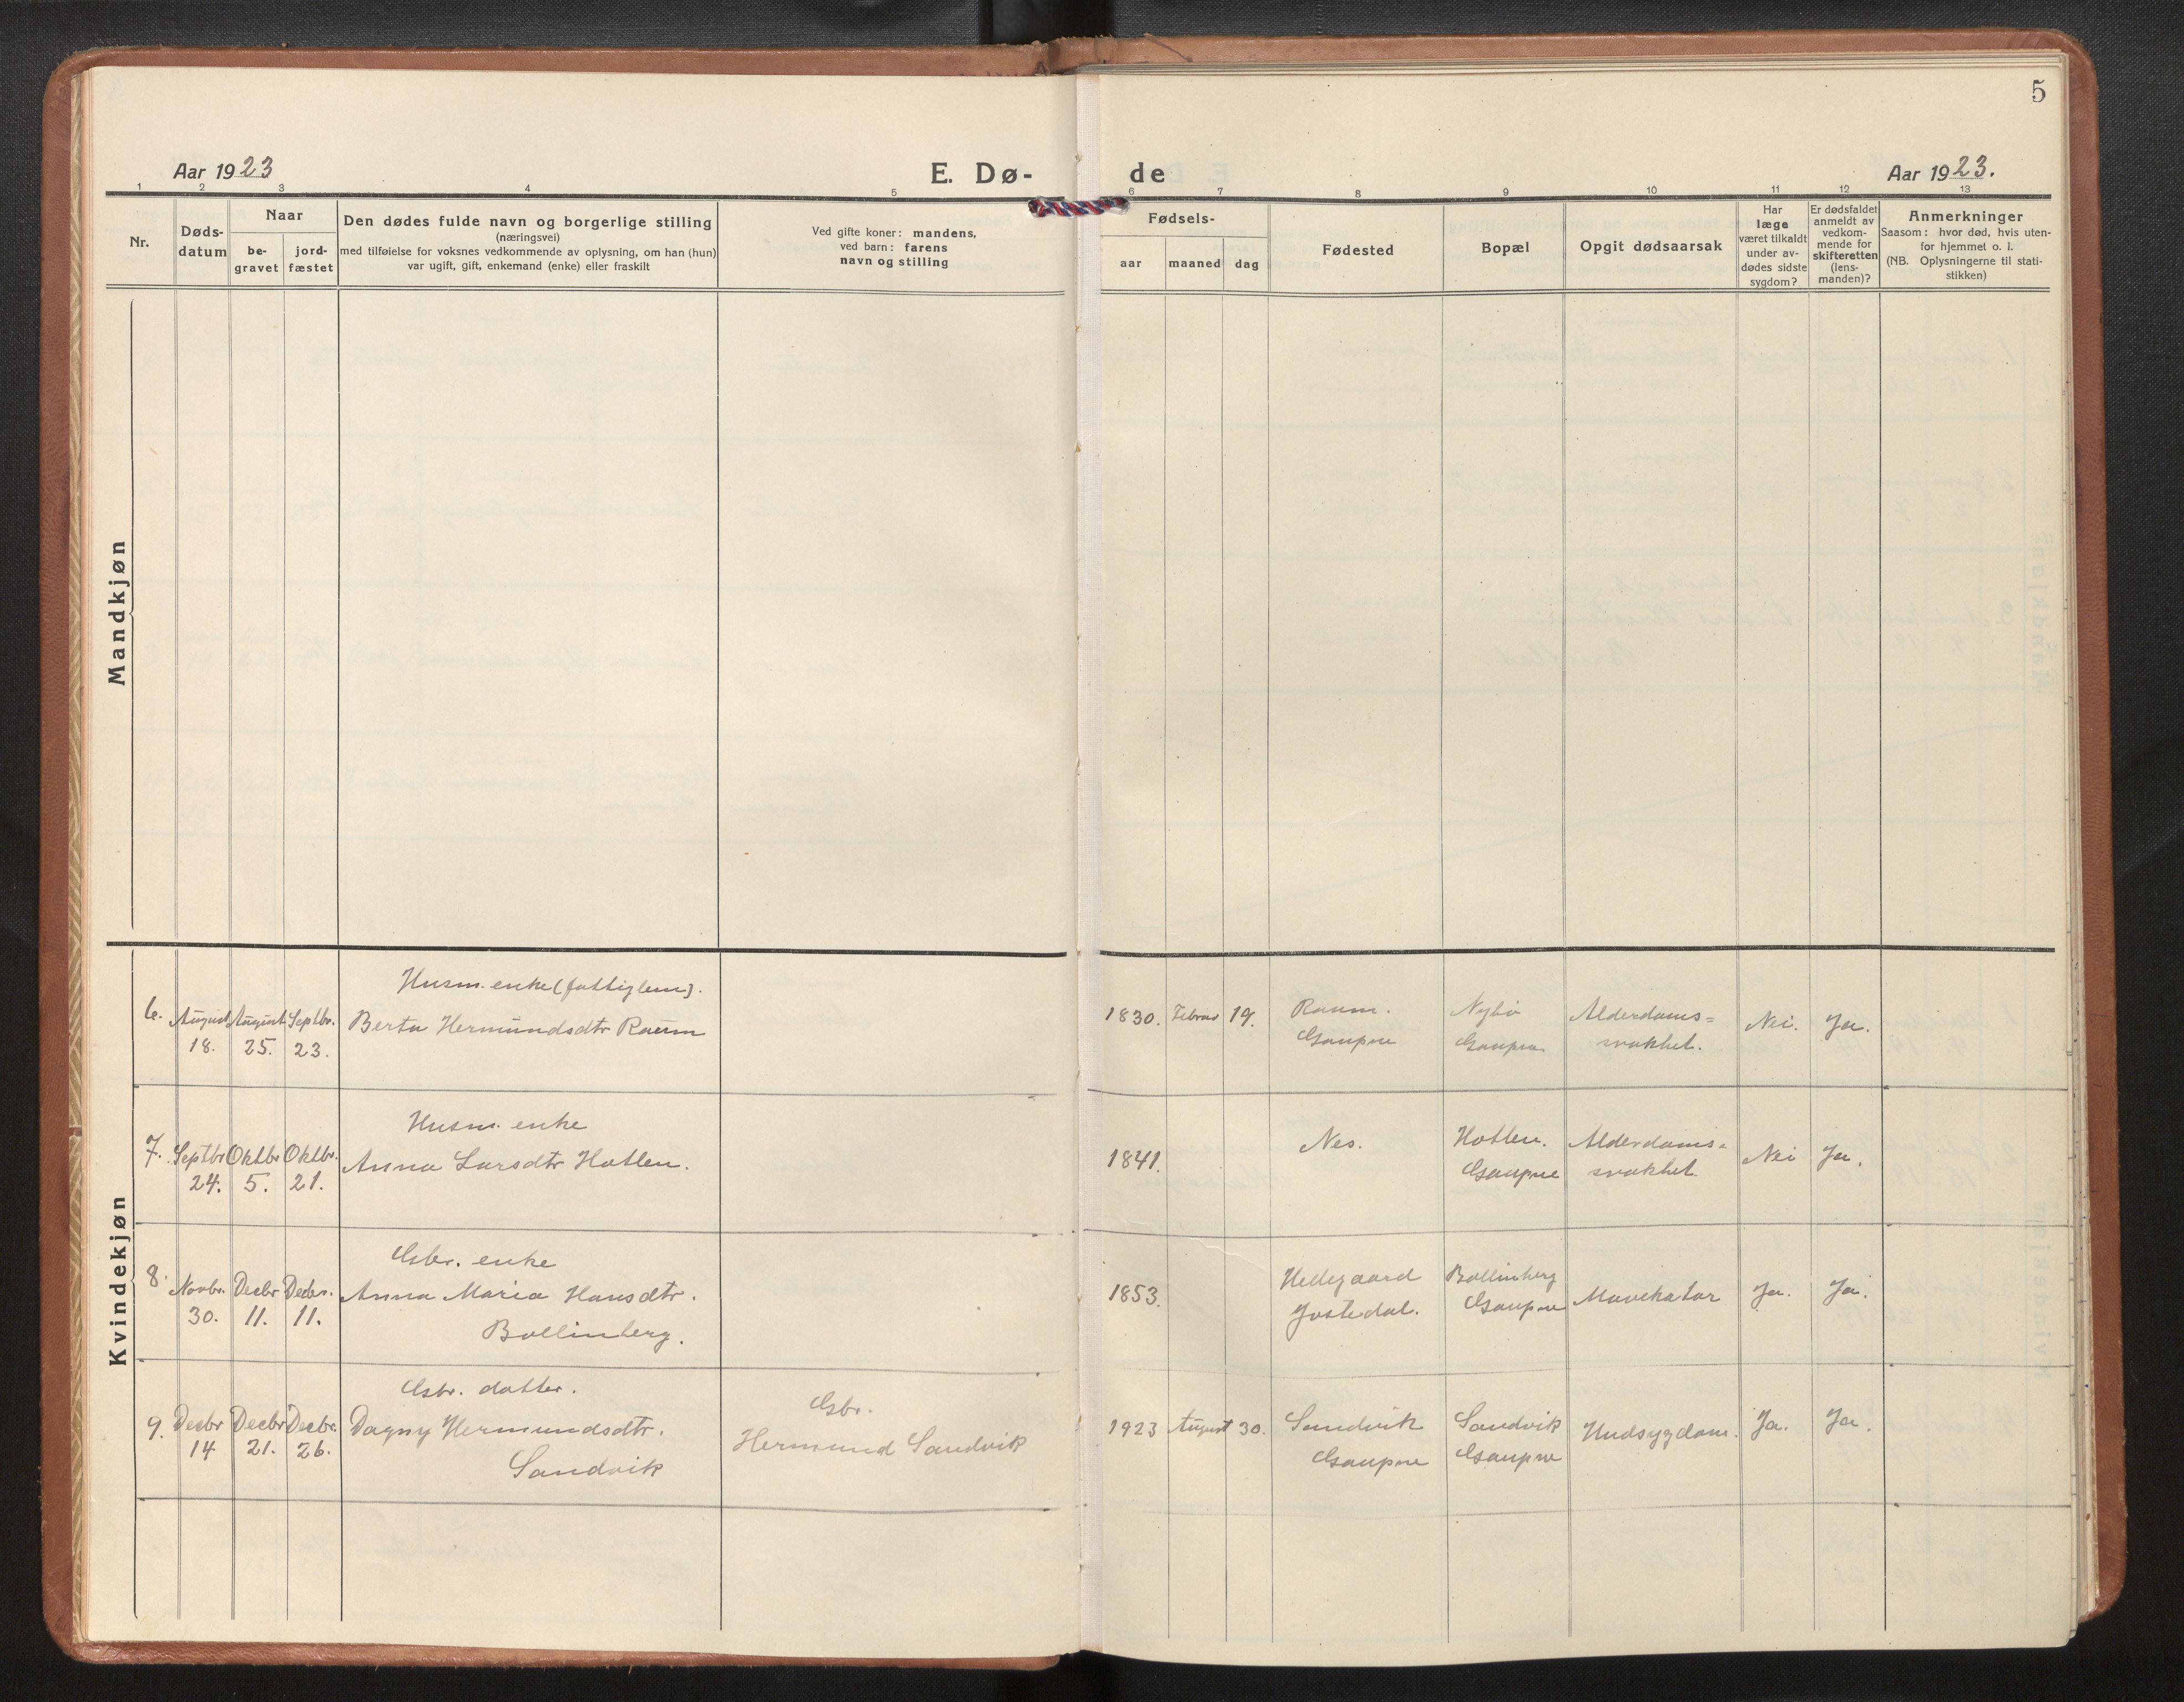 5
Aar 1923
E. Dø-
de
Aar 1923.
1 2 3 4 5 6 7 8 9 10 11 12 13
Nr.
Døds-
datum
Naar
be-
gravet
jord-
fæstet
Den dødes fulde navn og borgerlige stilling
(næringsvei)
med tilføielse for voksnes vedkommende av oplysning, om han (hun)
var ugift, gift, enkemand (enke) eller fraskilt
Ved gifte koner: mandens,
ved barn: farens
navn og stilling
Fødsels-
aar
maaned
dag
Fødested
Bopæl
Opgit dødsaarsak
Har
læge
været tilkaldt
under av-
dødes sidste
sygdom?
Er dødsfaldet
anmeldt av
vedkom-
mende for
skifteretten
(lens-
manden)?
Anmerkninger
Saasom: hvor død, hvis uten-
for hjemmet o. l.
(NB. Oplysningerne til stati-
stikken)
Mandkjøn
Kvindekjøn
6.
August
18.
August
25.
Septbr.
23.
Husm. enke (fattiglem).
Berta Hermundsdtr Raum
1830.
Februar
19.
Raum.
Gaupne
Nybø
Gaupne
Alderdoms=
svakhet.
Nei.
Ja.
7.
Septbr
24.
Oktbr
5.
Oktbr.
21.
Husm. enke
Anna Larsdtr Hotlen.
1841.
Nes.
Hotlen.
Gaupne
Alderdoms=
svakhet
Nei
Ja.
8.
Novbr.
30.
Decbr
11.
Decbr.
11.
Gbr. enke
Anna Maria Hansdtr.
Bollinberg.
1853.
Hedegaard
Jostedal.
Bollinberg
Gaupne
Mavekatar
Ja.
Ja.
9.
Decbr
14
Decbr
21.
Decbr.
26.
Gbr. datter.
Dagny Hermundsdtr.
Sandvik
Gbr.
Hermund Sandvik
1923
August
30.
Sandvik
Gaupne
Sandvik
Gaupne
Hudsygdom.
Ja.
Ja.